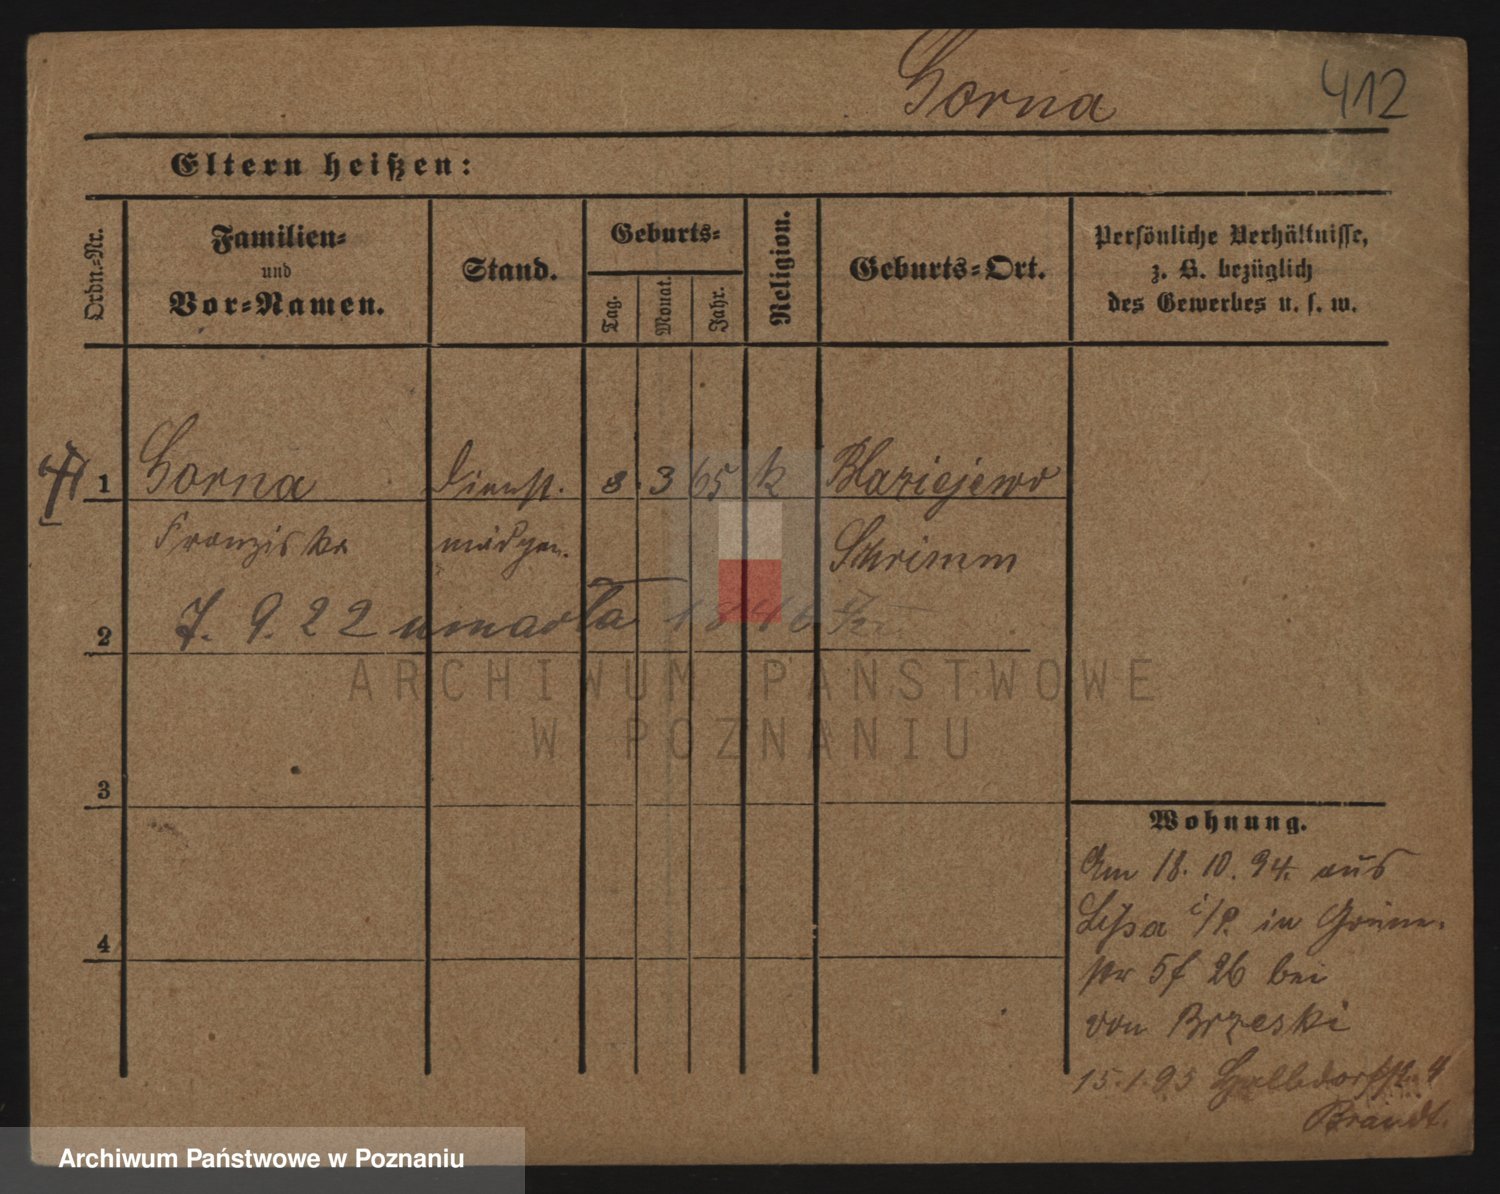 Gorna 412
Eltern heißen:
Ordn.-Nr.
Familien-
und
Vor-Namen.
Stand.
Geburts-
Tag.
Monat.
Jahr.
Religion.
Geburts-Ort.
Persönliche Verhältnisse,
z. B. bezüglich
des Gewerbes u. s. w.
1 Gorna Dienst. 8. 3 65 k Blaziejewo
Franziska mädgen. Schrimm
2 7. 9. 22 umarła 1846
ARCHIWUM PAŃSTWOWE
W POZNANIU
3
4
Wohnung.
Am 18. 10. 94. aus
Lissa i/P. in Grüne-
str 5f 26 bei
von Brzeski
15.1.95 Halbdorfstr. 4
Brandt.
Archiwum Państwowe w Poznaniu